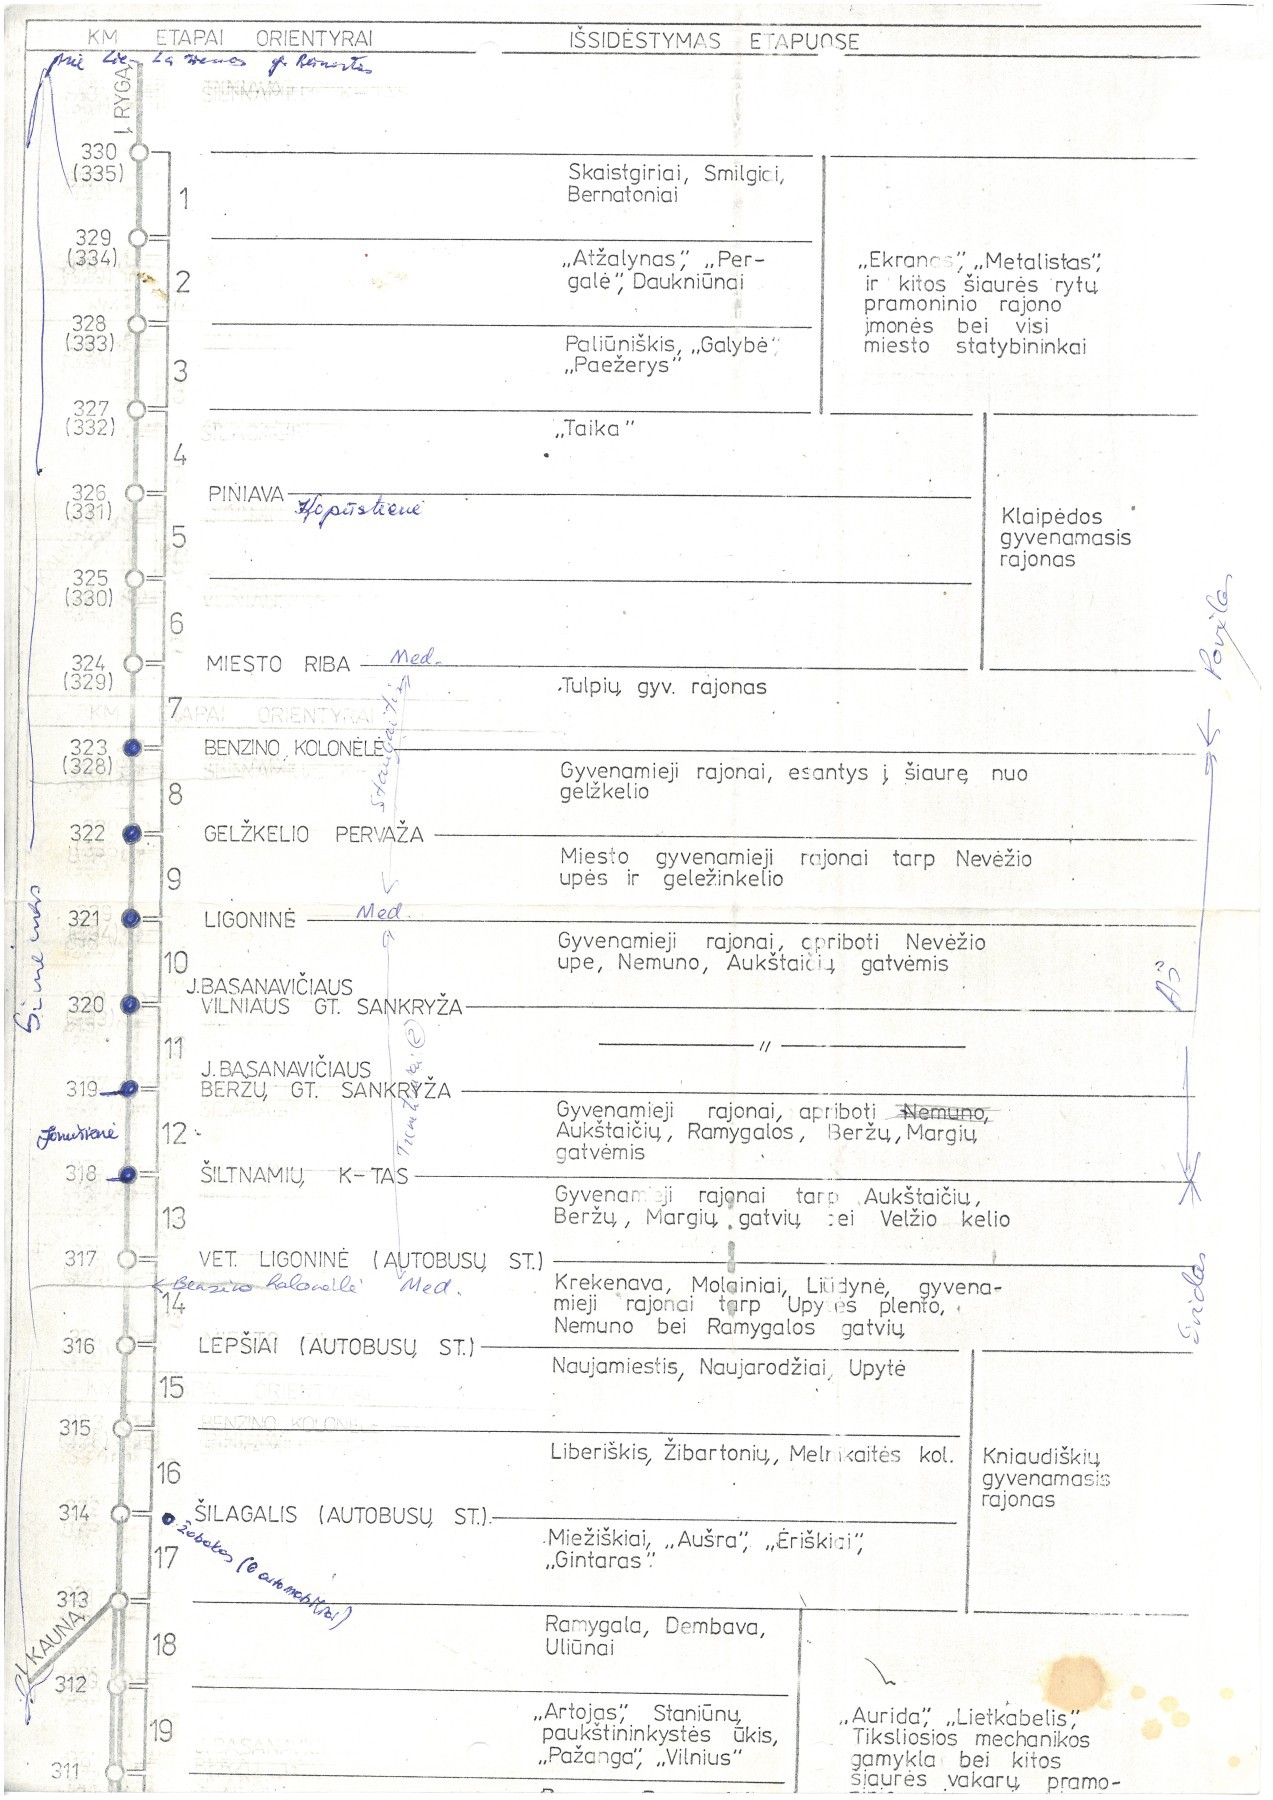 KM ETAPAI ORIENTYRAI IŠSIDĖSTYMAS ETAPUOSE
Į RYGĄ
330
(335)
1
Skaistgiriai, Smilgiai,
Bernatoniai
329
(334)
2
„Atžalynas”, „Per-
galė”, Daukniūnai
„Ekranas”, „Metalistas”,
ir kitos šiaurės rytų
pramoninio rajono
įmonės bei visi
miesto statybininkai
328
(333)
3
Paliūniškis, „Galybė”
„Paežerys”
327
(332)
4
„Taika”
326
(331)
PINIAVA
Kopūstienė
5
Klaipėdos
gyvenamasis
rajonas
325
(330)
6
324
(329)
MIESTO RIBA Med.
7
Tulpių gyv. rajonas
Povilas
323
(328)
BENZINO KOLONĖLĖ
8
Gyvenamieji rajonai, esantys į šiaurę nuo
gelžkelio
322
GELŽKELIO PERVAŽA
9
Miesto gyvenamieji rajonai tarp Nevėžio
upės ir geležinkelio
321
LIGONINĖ Med.
10
Gyvenamieji rajonai, apriboti Nevėžio
upe, Nemuno, Aukštaičių gatvėmis
Aš
320
J.BASANAVIČIAUS
VILNIAUS GT. SANKRYŽA
11
— " —
319
J.BASANAVIČIAUS
BERŽŲ GT. SANKRYŽA
12
Gyvenamieji rajonai, apriboti Nemuno,
Aukštaičių, Ramygalos, Beržų, Margių
gatvėmis
318
ŠILTNAMIŲ K-TAS
13
Gyvenamieji rajonai tarp Aukštaičių,
Beržų, Margių gatvių bei Velžio kelio
317
VET. LIGONINĖ (AUTOBUSŲ ST.)
Benzino kolonėlė Med.
14
Krekenava, Molainiai, Liūdynė, gyvena-
mieji rajonai tarp Upytės plento,
Nemuno bei Ramygalos gatvių
316
LEPŠIAI (AUTOBUSŲ ST.)
15
Naujamiestis, Naujarodžiai, Upytė
315
16
Liberiškis, Žibartonių, Melnikaitės kol.
Kniaudiškių
gyvenamasis
rajonas
314
ŠILAGALIS (AUTOBUSŲ ST.)
17
Miežiškiai, „Aušra”, „Ėriškiai”,
„Gintaras”
313
Į KAUNĄ
18
Ramygala, Dembava,
Uliūnai
312
19
„Artojas”, Staniūnų
paukštininkystės ūkis,
„Pažanga”, „Vilnius”
„Aurida”, „Lietkabelis”,
Tiksliosios mechanikos
gamykla bei kitos
šiaurės vakarų pramo-
311